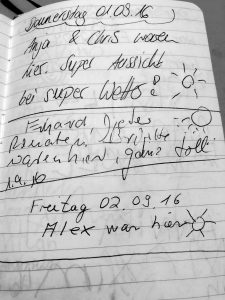 Donnerstag 01.09.16
Anja & Chris waren
hier. Super Aussicht
bei super Wetter!
Erhard,
Renate,
waren hier, ganz toll!
1.9.16
Freitag 02.09.16
Alex war hier